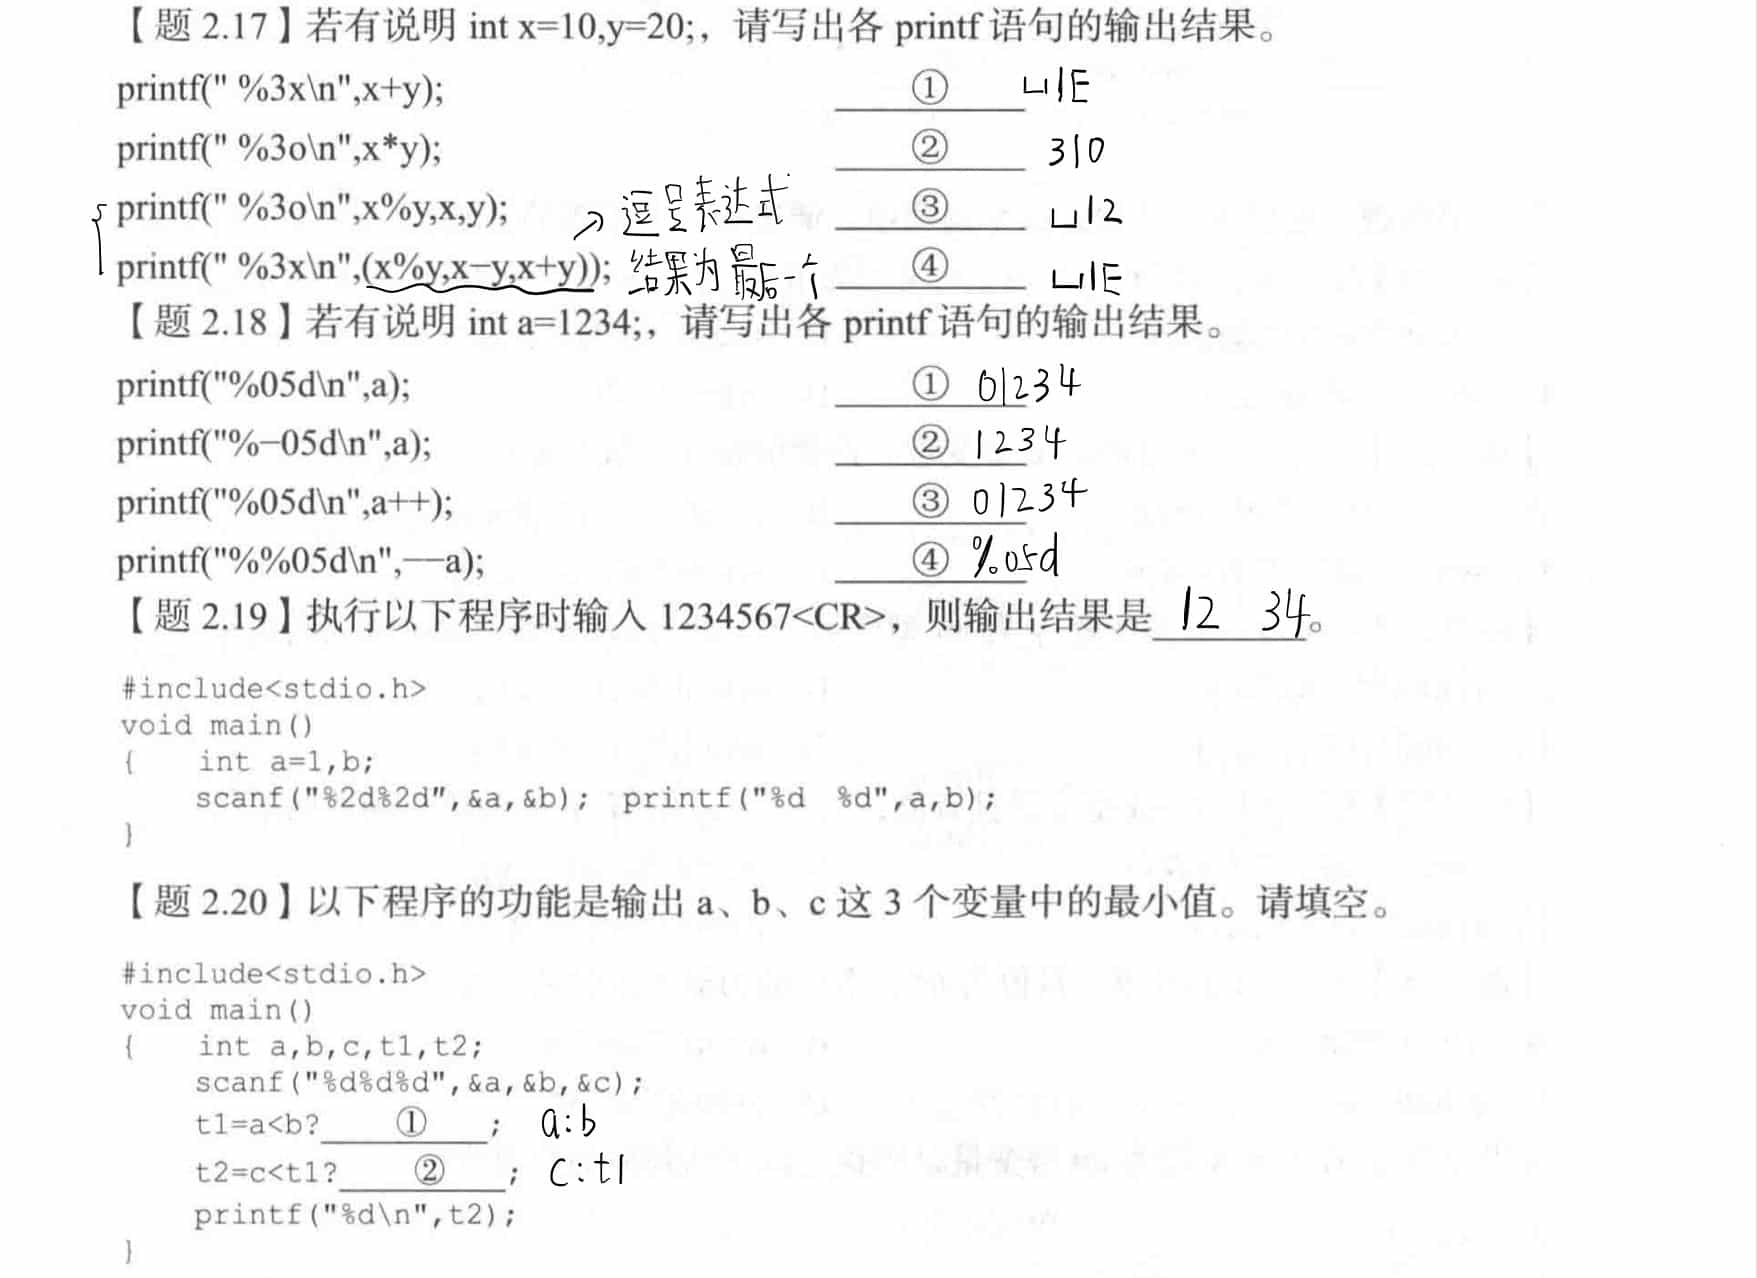 【题 2.17】若有说明 int x=10,y=20;，请写出各 printf 语句的输出结果。
printf(" %3x\n",x+y); ① ⊔1E
printf(" %3o\n",x*y); ② 310
printf(" %3o\n",x%y,x,y); → 逗号表达式 ③ ⊔12
printf(" %3x\n",(x%y,x−y,x+y)); 结果为最后一个 ④ ⊔1E
【题 2.18】若有说明 int a=1234;，请写出各 printf 语句的输出结果。
printf("%05d\n",a); ① 01234
printf("%−05d\n",a); ② 1234
printf("%05d\n",a++); ③ 01234
printf("%%05d\n",—a); ④ %05d
【题 2.19】执行以下程序时输入 1234567<CR>，则输出结果是 12 34。
#include<stdio.h>
void main()
{ int a=1,b;
scanf("%2d%2d",&a,&b); printf("%d %d",a,b);
}
【题 2.20】以下程序的功能是输出 a、b、c 这 3 个变量中的最小值。请填空。
#include<stdio.h>
void main()
{ int a,b,c,t1,t2;
scanf("%d%d%d",&a,&b,&c);
t1=a<b? ① ; a:b
t2=c<t1? ② ; c:t1
printf("%d\n",t2);
}